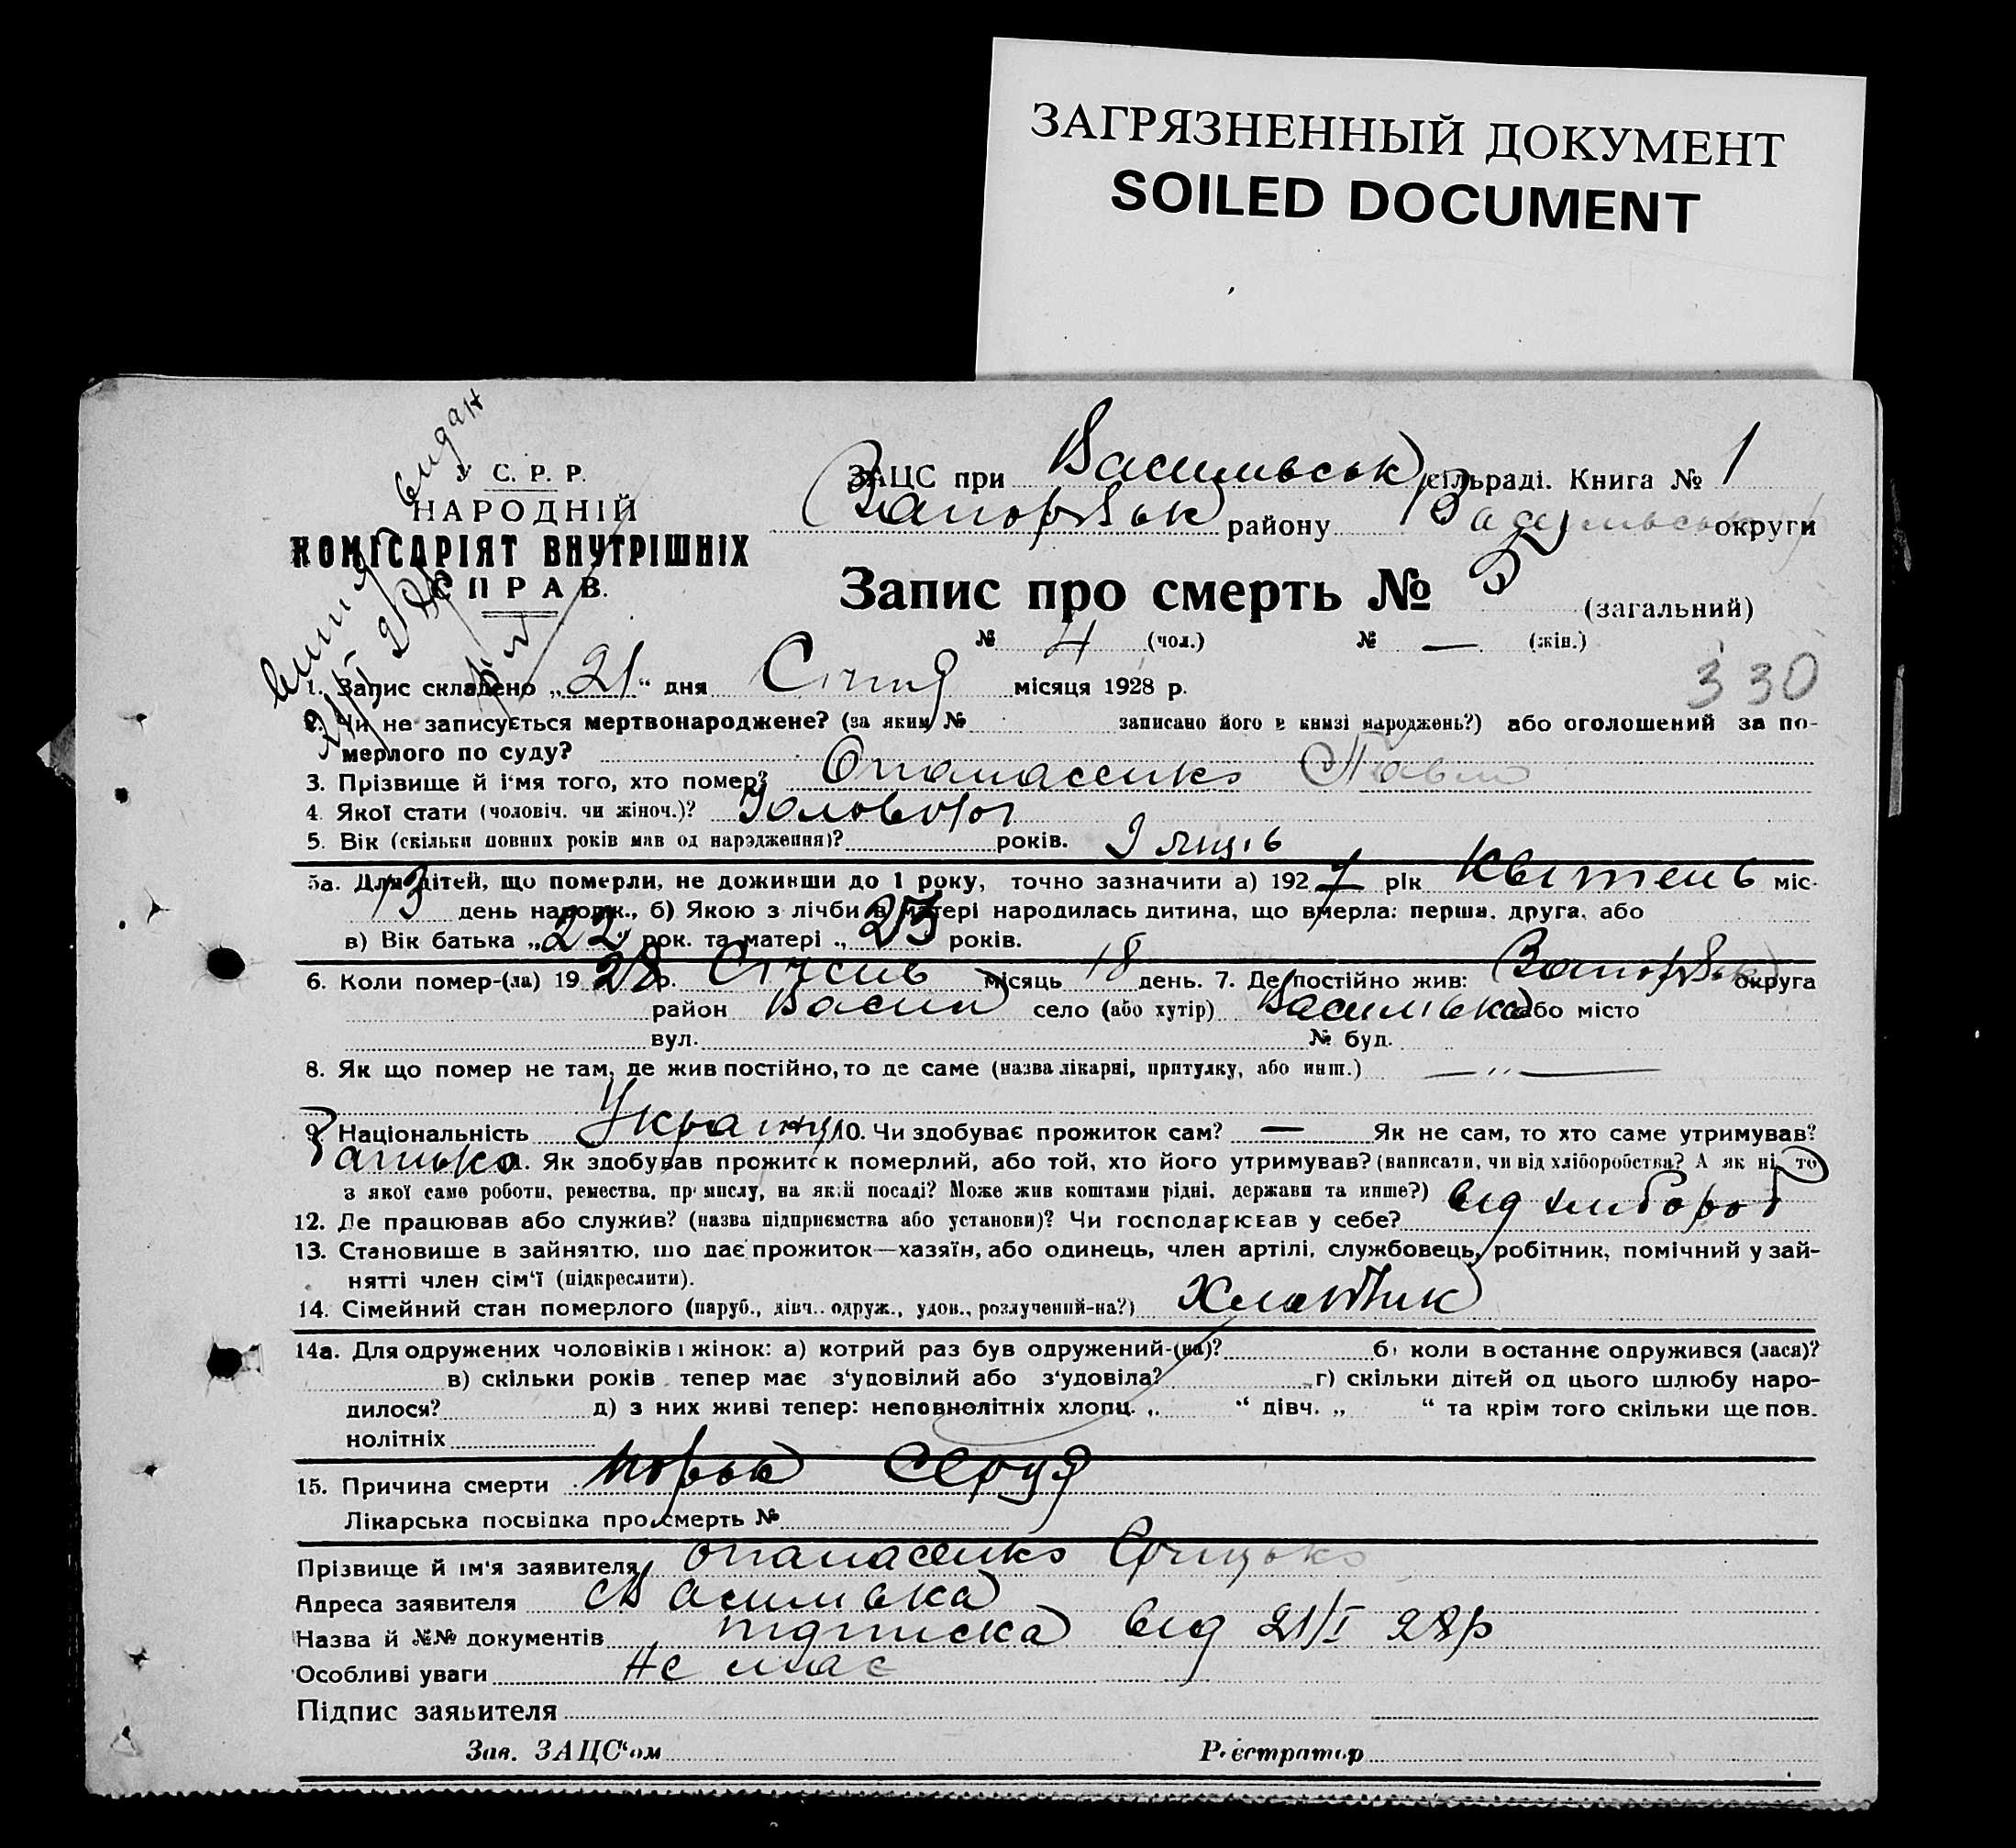 ЗАГРЯЗНЕННЫЙ ДОКУМЕНТ
SOILED DOCUMENT
У. С. Р. Р.
НАРОДНІЙ
КОМІСАРІЯТ ВНУТРІШНІХ
СПРАВ.
видан
21/I 28р
ЗАЦС при Васильськ сільраді. Книга № 1
району округи
Запис про смерть № 5 (загальний)
№ 4 (чол.) № — (жін.)
330
1. Запис складено „21“ дня Січня місяця 1928 р.
2. Чи не записується мертвонароджене? (за яким № записано його в книзі народжень?) або оголошений за по-
мерлого по суду?
3. Прізвище й ім'я того, хто помер? Опанасенко Павло
4. Якої стати (чоловіч. чи жіноч.)?
5. Вік (скільки повних років мав од народження)? років. 9 місців
5а. Для дітей, що померли, не доживши до 1 року, точно зазначити а) 1927 рік Квітень міс.
13 день народж., б) Якою з лічби в матері народилась дитина, що вмерла: перша, друга, або
в) Вік батька „22“ рок. та матері „23 років.
6. Коли помер-(ла) 1928 р. Січень місяць 18 день. 7. Де постійно жив: округа
район Васил село (або хутір) Василівка або місто
вул. № буд.
8. Як що помер не там, де жив постійно, то де саме (назва лікарні, притулку, або инш.) — „ —
9. Національність Українц 10. Чи здобуває прожиток сам? — Як не сам, то хто саме утримував?
Батько 11. Як здобував прожиток померлий, або той, хто його утримував? (написати, чи від хліборобства? А як ні, то
з якої саме роботи, ремества, промислу, на якій посаді? Може жив коштами рідні, держави та инше?) від хлібороб
12. Де працював або служив? (назва підприємства або установи)? Чи господарював у себе?
13. Становище в зайняттю, що дає прожиток—хазяїн, або одинець, член артілі, службовець, робітник, помічний у зай-
нятті член сім'ї (підкреслити).
14. Сімейний стан померлого (паруб., дівч., одруж., удов., розлучений-на?) Хлопчик
14а. Для одружених чоловіків і жінок: а) котрий раз був одружений-(на)? б) коли востаннє одружився (лася)?
в) скільки років тепер має з'удовілий або з'удовіла? г) скільки дітей од цього шлюбу наро-
дилося? д) з них живі тепер: неповнолітніх хлопц. „ “ дівч. „ “ та крім того скільки ще пов.
нолітніх
15. Причина смерти
Лікарська посвідка про смерть №
Прізвище й ім'я заявителя Опанасенко Грицько
Адреса заявителя Василівка
Назва й №№ документів підписка від 21/I 28р
Особливі уваги Не має
Підпис заявителя
Зав. ЗАЦС'ом Реєстратор